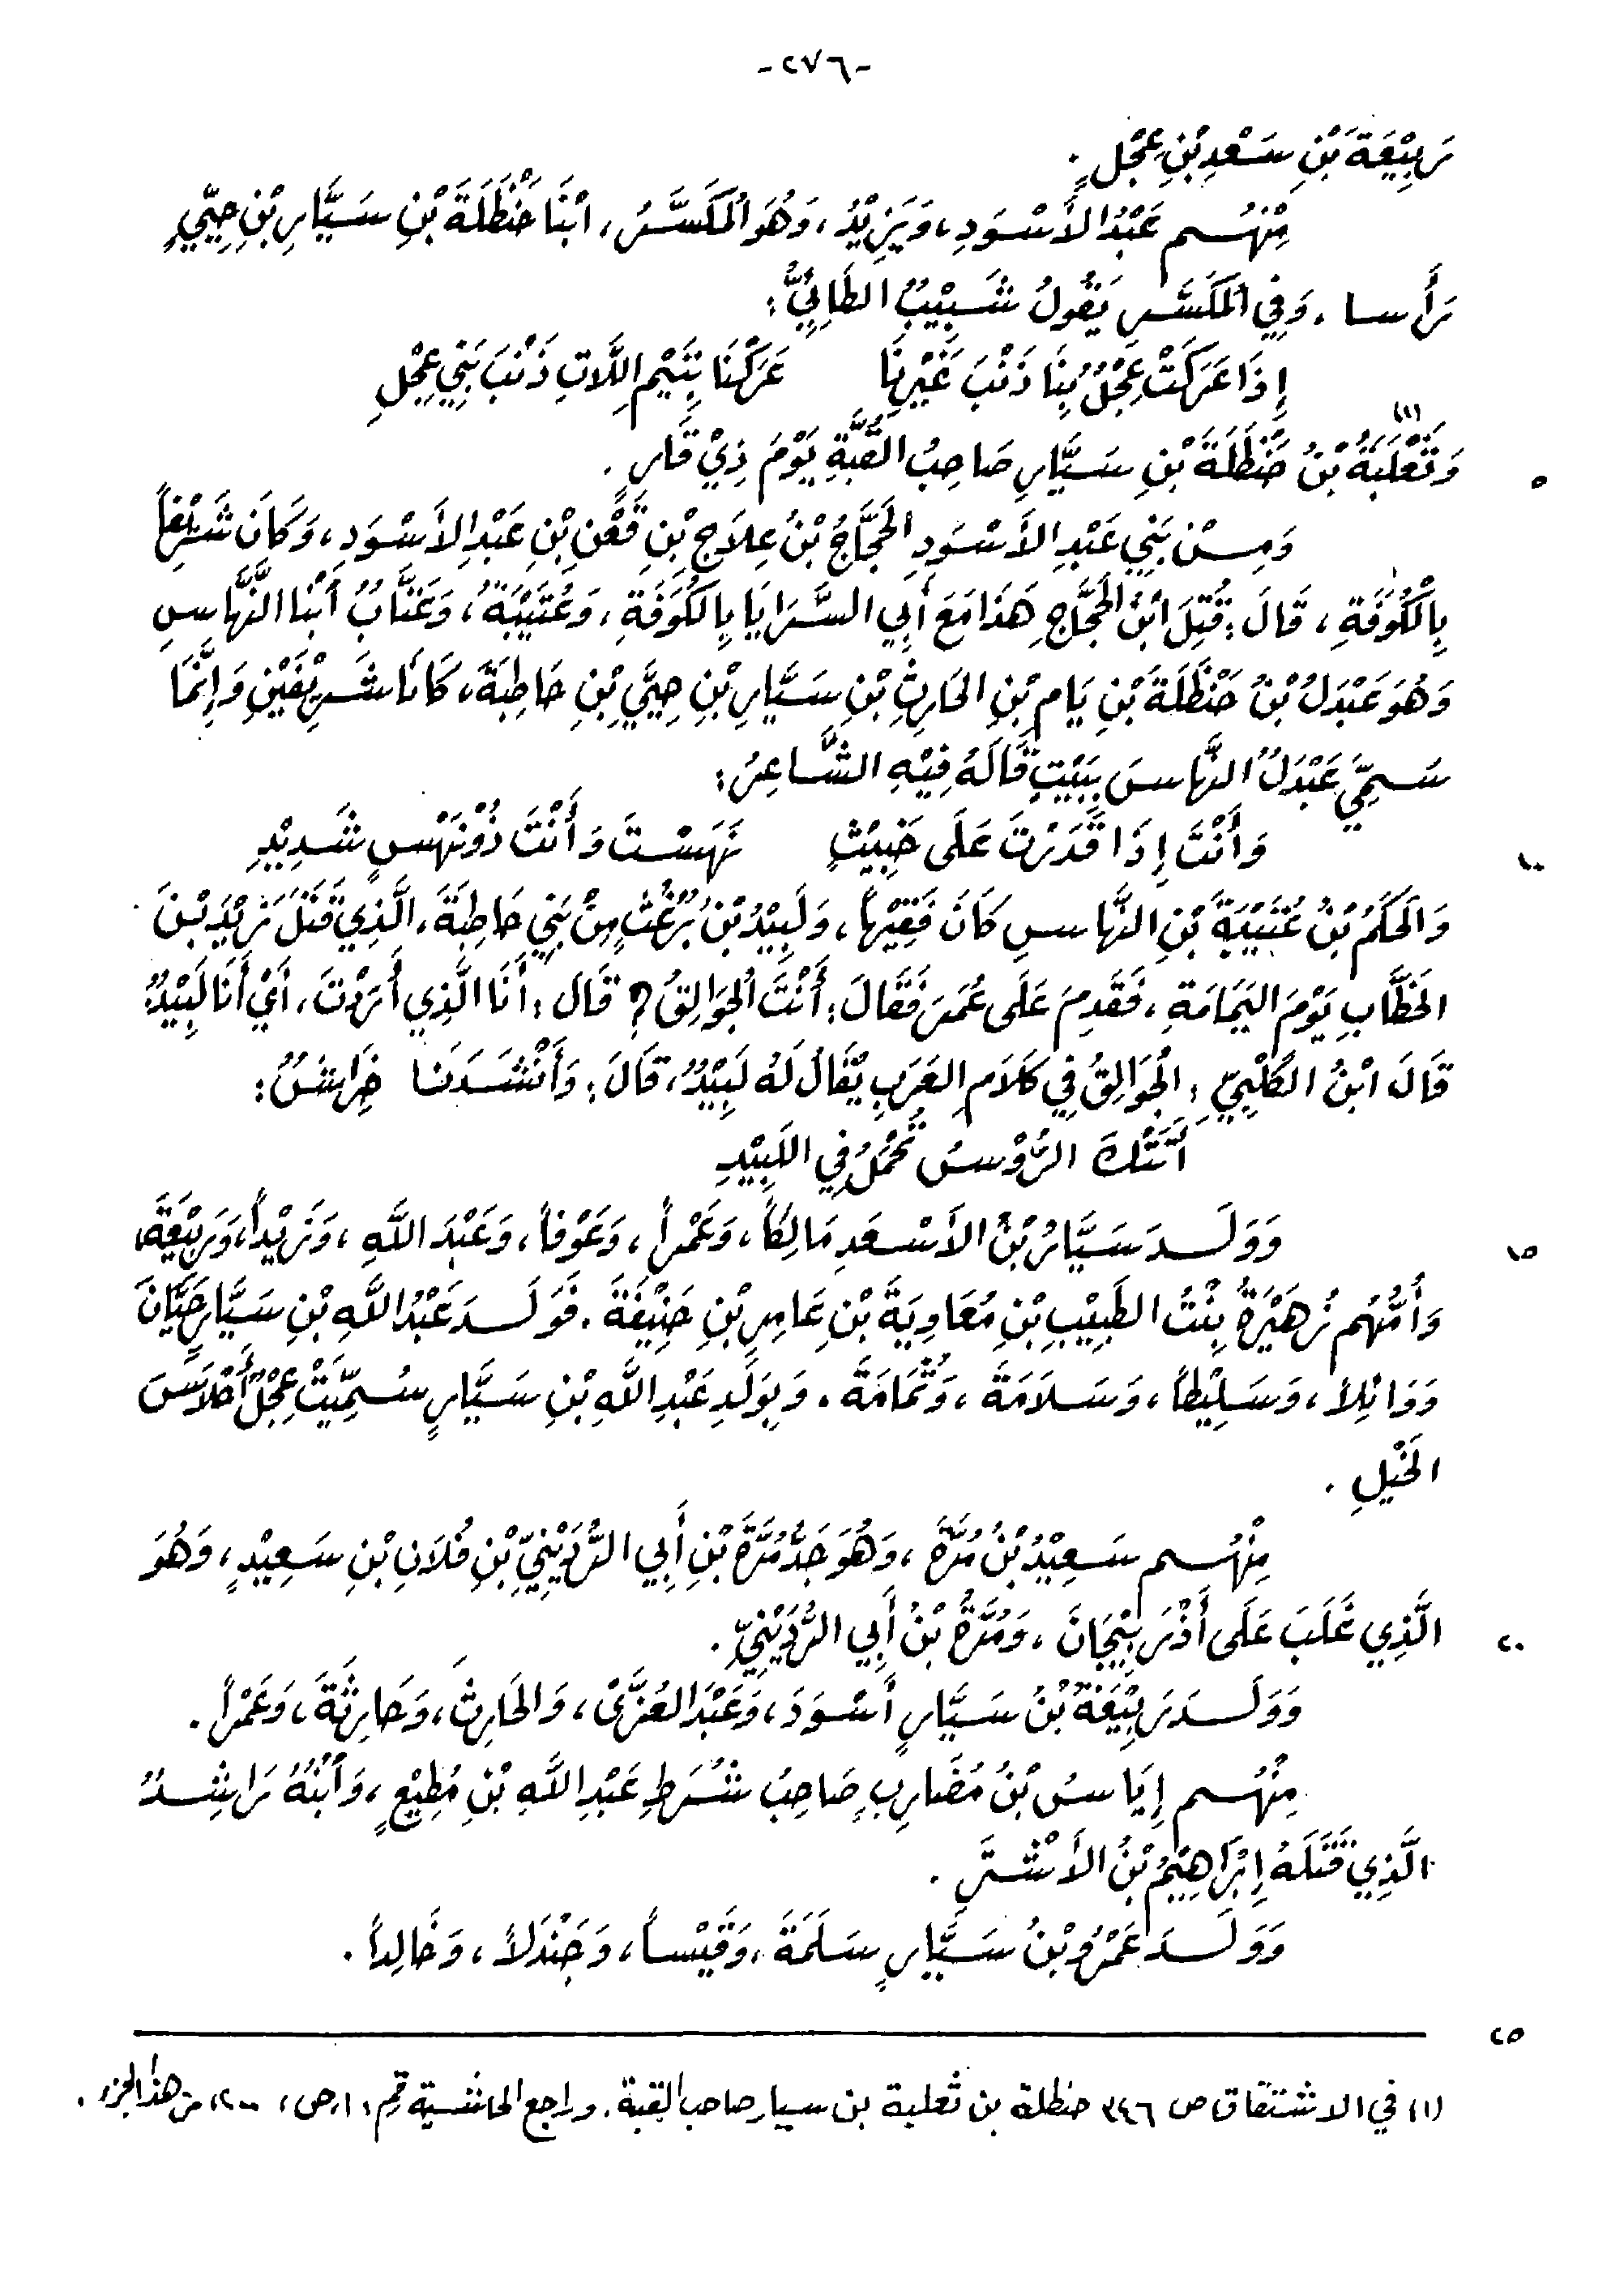 -٢٧٦-
رَبِيْعَةَ بْنِ سَعْدِ بْنِ عِجْلٍ .
مِنْهُم عَبْدُ الأَسْوَدِ، وَيَزِيْدُ، وَهُوَ المُكَسَّرُ، ابْنَا حَنْظَلَةَ بْنِ سَيَّارِ بْنِ حِيَيٍّ
رَأَسا . وَفِي المُكَسَّرِ يَقُولُ شَبِيْبٌ الطَّائِيُّ :
إِذَا عَرَكَتْ عِجْلٌ بِنَا ذَنْبَ غَيْرِنَا عَرَكْنَا بِتَيْمِ اللَّاتِ ذَنْبَ بَنِي عِجْلِ
وَثَعْلَبَةُ بْنُ حَنْظَلَةَ بْنِ سَيَّارٍ صَاحِبُ القُبَّةِ يَوْمَ ذِيْ قَارٍ . (١) ٥
وَمِنْ بَنِي عَبْدِ الأَسْوَدِ الحَجَّاجُ بْنُ عِلَاجِ بْنِ قَعْنِ بْنِ عَبْدِ الأَسْوَدِ، وَكَانَ شَرِيْفاً
بِالكُوفَةِ، قَالَ : قُتِلَ ابْنُ الحَجَّاجِ هَذَا مَعَ أَبِي السَّرَايَا بِالكُوفَةِ، وَعُتَيْبَةُ، وَعَتَّابٌ ابْنَا النَّهَّاسِ
وَهُوَ عَبْدَلُ بْنُ حَنْظَلَةَ بْنِ يَامِ بْنِ الحَارِثِ بْنِ سَيَّارِ بْنِ حِيَيِّ بْنِ حَاطِبَةَ، كَانَا شَرِيْفَيْنِ وَإِنَّمَا
سُمِّيَ عَبْدَلُ النَّهَّاسَ بِبَيْتٍ قَالَهُ فِيْهِ الشَّاعِرُ :
وَأَنْتَ إِذَا قَدَرْتَ عَلَى خَبِيْثٍ نَهَسْتَ وَأَنْتَ ذُوْ نَهْسٍ شَدِيْدِ ١٠
وَالحَكَمُ بْنُ عُتَيْبَةَ بْنِ النَّهَّاسِ كَانَ فَقِيْهاً، وَلَبِيْدُ بْنُ بُرْغُثٍ مِنْ بَنِي حَاطِبَةَ، الَّذِي قَتَلَ زَيْدَ بْنَ
الخَطَّابِ يَوْمَ اليَمَامَةِ، فَقَدِمَ عَلَى عُمَرَ فَقَالَ : أَنْتَ الجُوَالِقُ ؟ قَالَ : أَنَا الَّذِي أَرَدْتَ، أَيْ أَنَا لَبِيْدٌ
قَالَ ابْنُ الكَلْبِيِّ : الجُوَالِقُ فِي كَلَامِ العَرَبِ يُقَالُ لَهُ لَبِيْدٌ، قَالَ : وَأَنْشَدَنَا خِرَاشٌ :
أَتَتْكَ الرُّؤْسُ تُحْمَلُ فِي اللَّبِيْدِ
وَوَلَدَ سَيَّارُ بْنُ الأَسْعَدِ مَالِكاً، وَعَمْراً، وَعَوْفاً، وَعَبْدَ اللَّهِ، وَزَيْداً، وَرَبِيْعَةَ، ١٥
وَأُمُّهُم زُهَيْرَةُ بِنْتُ الطَّبِيْبِ بْنِ مُعَاوِيَةَ بْنِ عَامِرِ بْنِ حَنِيْفَةَ . فَوَلَدَ عَبْدُ اللَّهِ بْنِ سَيَّارٍ حَيَّانَ
وَوَائِلاً، وَسَلِيْطاً، وَسَلَامَةَ، وَثُمَامَةَ . وَبِوَلَدِ عَبْدِ اللَّهِ بْنِ سَيَّارٍ سُمِّيَتْ عِجْلٌ أَحْلَاسَ
الخَيْلِ .
مِنْهُم سَعِيْدُ بْنُ مُرَّةَ، وَهُوَ جَدُّ مُرَّةَ بْنِ أَبِي الرُّدَيْنِيِّ بْنِ فُلَانِ بْنِ سَعِيْدٍ، وَهُوَ
الَّذِي غَلَبَ عَلَى أَذْرَبِيْجَانَ، وَمُرَّةُ بْنُ أَبِي الرُّدَيْنِيِّ . ٢٠
وَوَلَدَ رَبِيْعَةُ بْنُ سَيَّارٍ أَسْوَدَ، وَعَبْدَ العُزَّىْ، وَالحَارِثَ، وَحَارِثَةَ، وَعَمْراً .
مِنْهُم إِيَاسُ بْنُ مُضَارِبٍ صَاحِبُ شُرَطِ عَبْدِ اللَّهِ بْنِ مُطِيْعٍ، وَابْنُهُ رَاشِدٌ
الَّذِي قَتَلَهُ إِبْرَاهِيْمُ بْنُ الأَشْتَرِ .
وَوَلَدَ عَمْرُو بْنُ سَيَّارٍ سَلَمَةَ، وَقَيْساً، وَجَنْدَلاً، وَخَالِداً .
٢٥
(١) في الاشتقاق ص ٣٤٦ حنظلة بن ثعلبة بن سيار صاحب القبة . وراجع الحاشية رقم : ١، ص : ٢٠٠، من هذا الجزء .